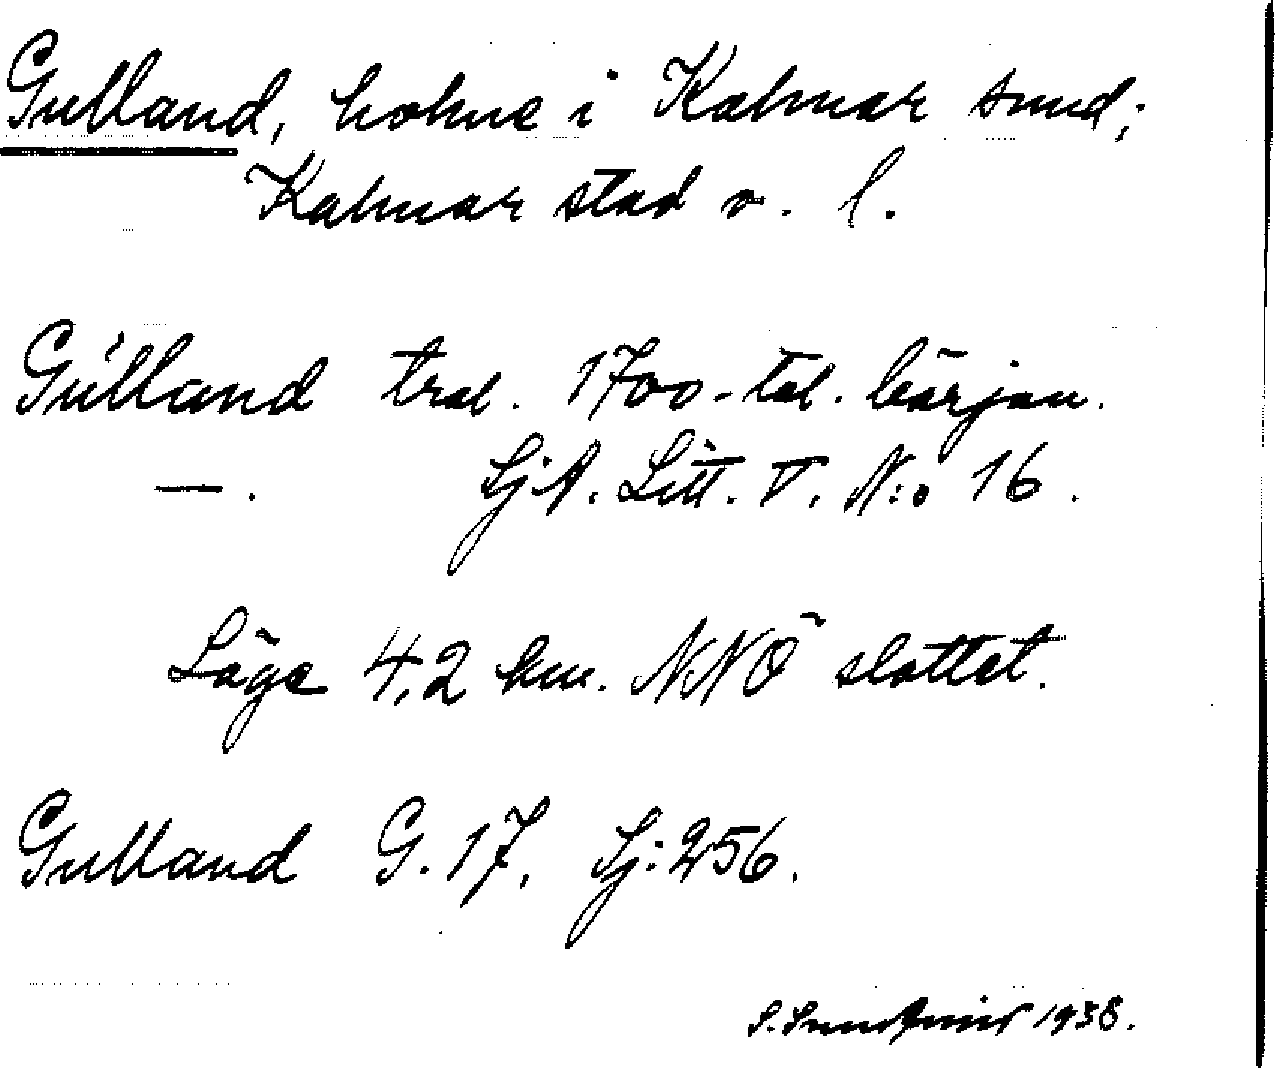 Gulland, holme i Kalmar sund;
Kalmar stad o. l.
Gúlland tral. 1700-tal. början.
— . SjA. Litt. V. N:o 16.
Läge 4,2 km. NNÖ slottet.
Gulland G. 17, Sj: 256.
S. 1938.